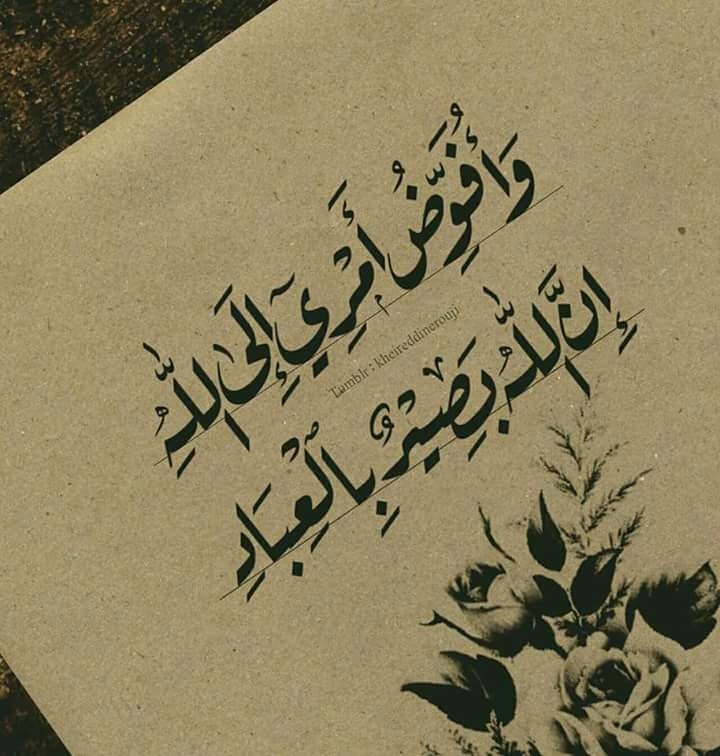 وَأُفَوِّضُ أَمْرِيٓ إِلَى اللَّهِ
إِنَّ اللَّهَ بَصِيْرٌ بِالْعِبَادِ
Tumblr : kheireddinerouji